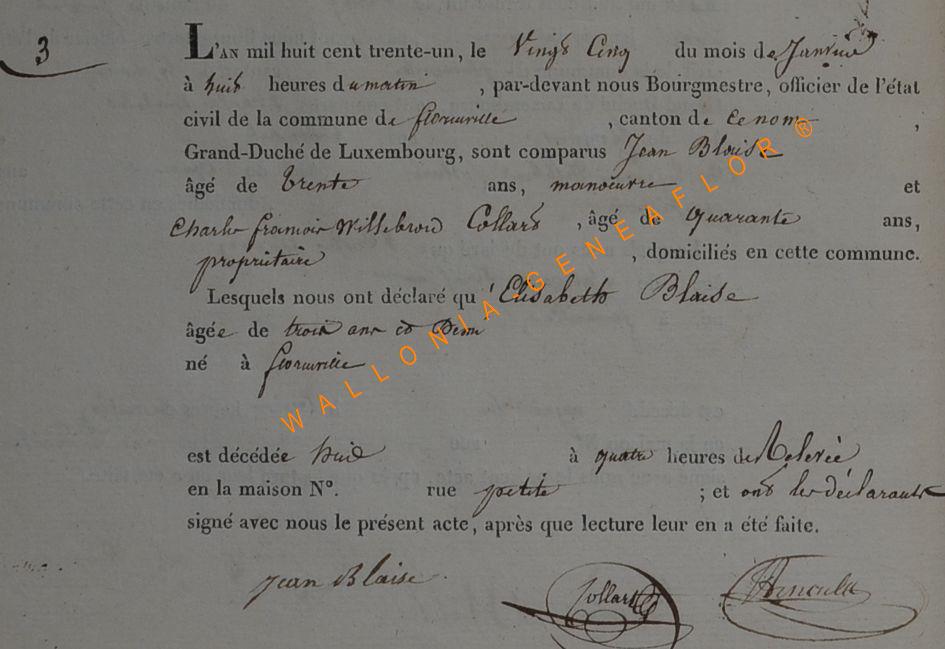 3
L'AN mil huit cent trente-un, le Vingt Cinq du mois de Janvier
à huit heures du matin, par-devant nous Bourgmestre, officier de l'état
civil de la commune de florenville, canton de
Grand-Duché de Luxembourg, sont comparus Jean Blaise
âgé de trente ans, manoeuvre et
Charle françois Willebrord Collard, âgé de quarante ans,
propriétaire, domiciliés en cette commune.
Lesquels nous ont déclaré qu'Elisabeth Blaise
âgée de trois ans et Demi
né à florenville
est décédée à quatre heures de Relevée
en la maison N°. rue petite; et ont les déclarants
signé avec nous le présent acte, après que lecture leur en a été faite.
Jean Blaise Collard
WALLONIA-GENEAFLOR ®